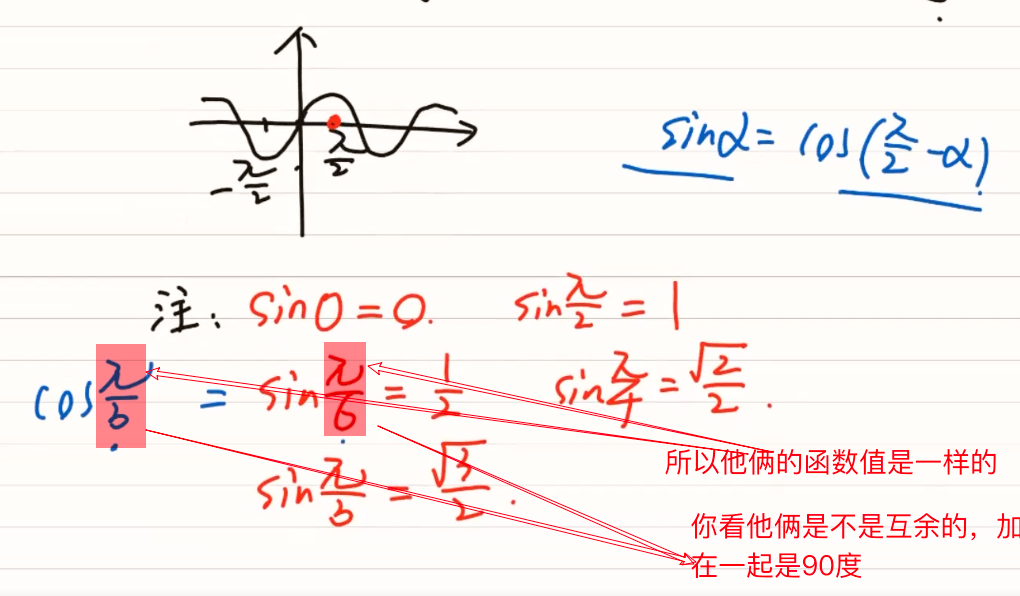 π/2
-π/2
sinα = cos(π/2 - α)
注: sin0 = 0. sin π/2 = 1
cos π/3 = sin π/6 = 1/2 sin π/4 = √2/2.
所以他俩的函数值是一样的
sin π/3 = √3/2.
你看他俩是不是互余的，加
在一起是90度